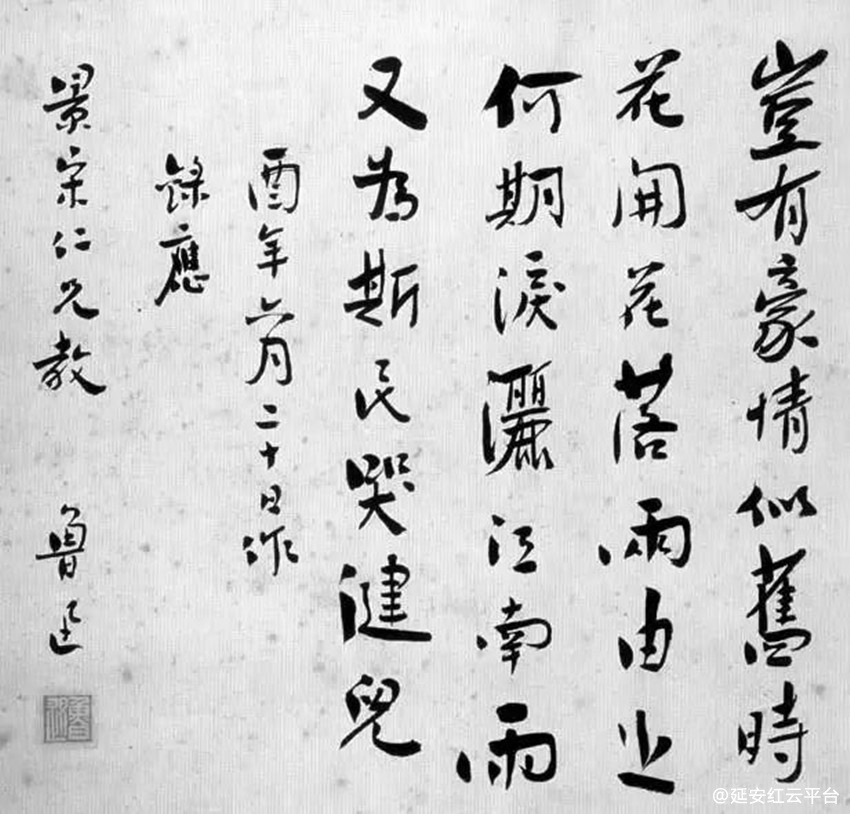 豈有豪情似舊時
花開花落兩由之
何期淚灑江南雨
又為斯民哭健兒
酉年六月二十日作
錄應
景宋仁兄教
魯迅
魯迅
@延安红云平台